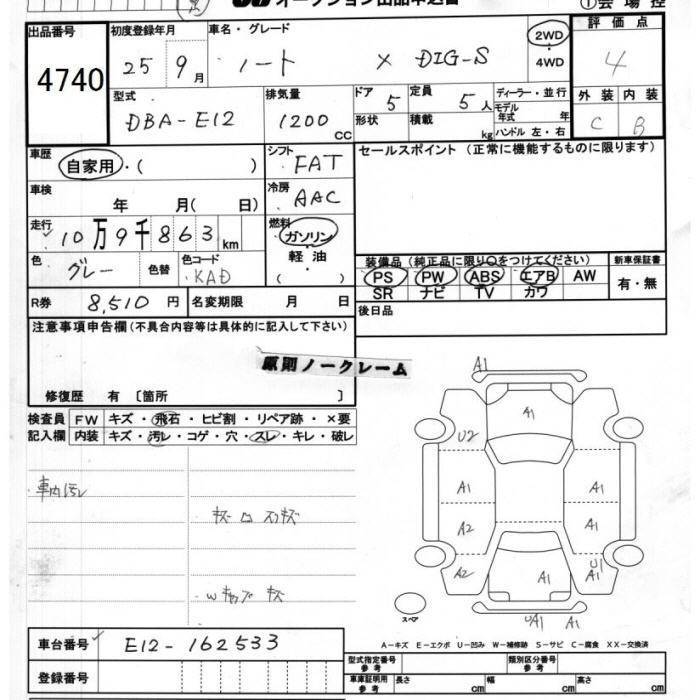 オークション出品申込書 ①会場控
出品番号 初度登録年月 車名・グレード 2WD 評価点
4740 25年9月 ノート X DIG-S ・4WD 4
型式 排気量 ドア 定員 ディーラー・並行 外装 内装
DBA-E12 1200cc 5 5人 モデル年式 年 C B
形状 積載 kg ハンドル 左・右
車歴 シフト セールスポイント (正常に機能するものに限ります)
自家用・( ) FAT
車検 冷房
年 月( 日) AAC
走行 燃料
10万9千863km ガソリン
色 色替 色コード 軽油 装備品 (純正品に限り○をつけてください) 新車保証書
グレー KAD ( ) PS PW ABS エアB AW 有・無
SR ナビ TV カワ
R券 8,510円 名変期限 月 日 後日品
注意事項申告欄(不具合内容等は具体的に記入して下さい)
原則ノークレーム
修復歴 有 〔箇所 〕
検査員 FW キズ・飛石・ヒビ割・リペア跡・×要
記入欄 内装 キズ・汚レ・コゲ・穴・スレ・キレ・破レ
車内汚レ
A1
A1
U2
A1 A1
A2 A1
U1
A2 A1 A1
UA1 A1
スペア
A-キズ E-エクボ U-凹み W-補修跡 S-サビ C-腐食 XX-交換済
車台番号 E12-162533
登録番号
型式指定番号 参考 類別区分番号 参考
車庫証明用 参考 長さ cm 幅 cm 高さ cm